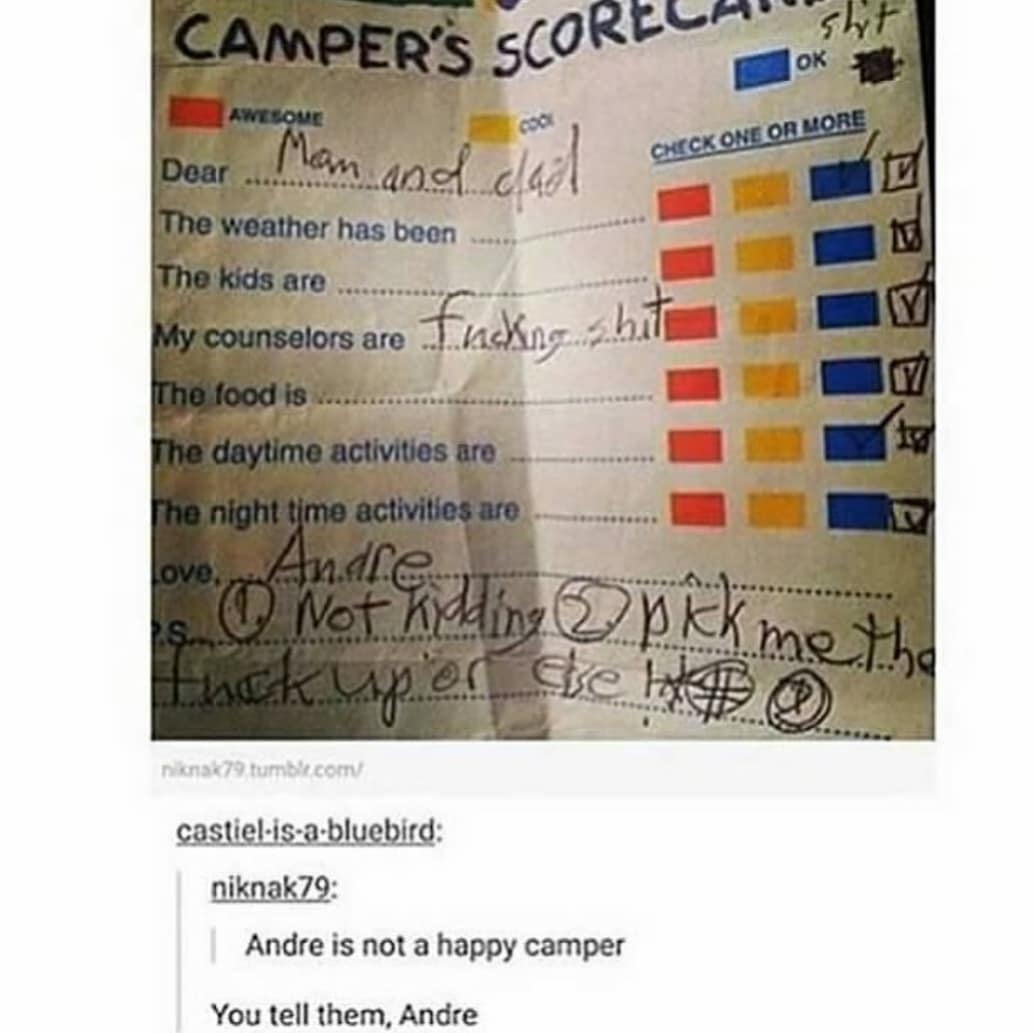 CAMPER'S SCORECAR
shit
OK
AWESOME
COOL
CHECK ONE OR MORE
Dear Mom and dad
The weather has been
The kids are
My counselors are fucking shit
The food is
The daytime activities are
The night time activities are
Love, Andre
P.S. ① Not kidding ② pick me the
fuck up or else
niknak79.tumblr.com/
castiel-is-a-bluebird:
niknak79:
Andre is not a happy camper
You tell them, Andre